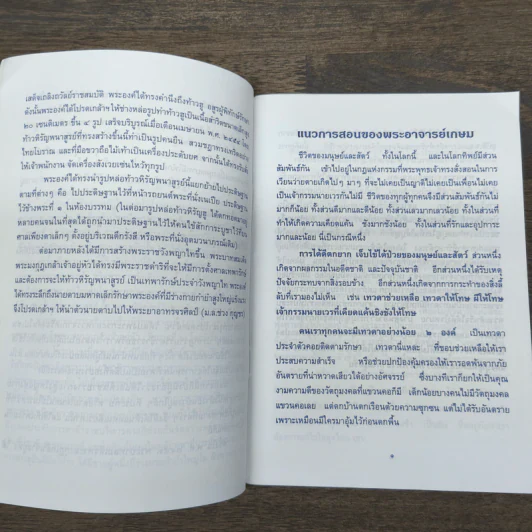 เสด็จเถลิงถวัลย์ราชสมบัติ พระองค์ได้ทรงคำนึงถึงท้าวฮู อสูรผู้พิทักษ์รักษา
ดังนั้นพระองค์ได้โปรดเกล้าฯให้ช่างหล่อรูปท่าท้าวฮูเป็นเนื้อสำริดขนาดเล็กสูง
๒๐ เซนติเมตร ขึ้น ๔ รูป เสร็จบริบูรณ์เมื่อเดือนเมษายน พ.ศ. ๒๔๕๔ โดย
ท้าวหิรัญพนาสูรย์ที่ทรงสร้างขึ้นนี้ทำเป็นรูปคนยืน สวมชฎาทรงเทริดอย่าง
ไทยโบราณ และที่มือขวาถือไม้เท้าเป็นเครื่องประดับยศ จากนั้นได้ทรงสั่ง
ให้เจ้าพนักงาน จัดเครื่องสังเวยเซ่นไหว้ทุกรูป
พระองค์ได้ทรงนำรูปหล่อท้าวหิรัญพนาสูรย์นี้แยกย้ายไปประดิษฐาน
ตามที่ต่างๆ คือ ไปประดิษฐานไว้ที่หน้ารถยนต์พระที่นั่งเนเปีย ประดิษฐาน
ไว้ข้างพระที่ ๑ ในห้องบรรทม (ในต่อมารูปหล่อท้าวหิรัญฮู ได้ตกทอดมา
หลายคนจนในที่สุดได้ถูกนำมาประดิษฐานไว้ให้คนใช้สักการะบูชาไว้ที่ใน
ศาลเพียงตาเล็กๆ ตั้งอยู่บริเวณตึกรังสี หรือที่นั่งอุดมวนาภรณ์เดิม)
ต่อมาภายหลังได้มีการสร้างพระราชวังพญาไทขึ้น พระบาทสมเด็จ
พระมงกุฎเกล้าเจ้าอยู่หัวได้ทรงมีพระราชดำริที่จะให้มีการตั้งศาลเทพารักษ์
และต้องการจะให้ท้าวหิรัญพนาสูรย์ เป็นเทพารักษ์ประจำวังพญาไท พระองค์
ได้ทรงระลึกถึงนายตาบมหาดเล็กรักษาพระองค์ที่มีร่างกายกำยำสูงใหญ่แข็งแรง
จึงโปรดเกล้าฯ ให้นำตัวนายตาบไปให้พระยาอาทรจรศิลป์ (ม.ล.ช่วง กุญชร)
แนวการสอนของพระอาจารย์เกษม
ชีวิตของมนุษย์และสัตว์ ทั้งในโลกนี้ และในโลกทิพย์มีส่วน
สัมพันธ์กัน เข้าไปอยู่ในกฎแห่งกรรมที่พระพุทธเจ้าทรงสั่งสอนในการ
เวียนว่ายตายเกิดไปๆ มาๆ ที่จะไม่เคยเป็นญาติไม่เคยเป็นเพื่อนไม่เคย
เป็นเจ้ากรรมนายเวรกันไม่มี ชีวิตของทุกผู้ทุกคนจึงมีส่วนสัมพันธ์กันไม่
มากก็น้อย ทั้งส่วนดีและดีน้อย ทั้งส่วนเลวมากเลวน้อย ทั้งในส่วนที่
ทำให้เกิดความเคียดแค้น ชังมากชังน้อย ทั้งในส่วนที่รักและอุปการะ
มากและน้อย นี่เป็นกรณีหนึ่ง
การได้ดีตกยาก เจ็บไข้ได้ป่วยของมนุษย์และสัตว์ ส่วนหนึ่ง
เกิดจากผลกรรมในอดีตชาติ และปัจจุบันชาติ อีกส่วนหนึ่งได้รับเหตุ
ปัจจัยกระทบจากสิ่งรอบข้าง อีกส่วนหนึ่งเกิดจากการกระทำของสิ่งลี้
ลับที่เรามองไม่เห็น เช่น เทวดาช่วยเหลือ เทวดาให้โทษ ผีให้โทษ
เจ้ากรรมนายเวรที่เคียดแค้นชิงชังให้โทษ
คนเราทุกคนจะมีเทวดาอย่างน้อย ๒ องค์ เป็นเทวดา
ประจำตัวคอยติดตามรักษา เทวดานี้แหละ ที่ชอบช่วยเหลือให้เรา
ประสบความสำเร็จ หรือช่วยปกป้องคุ้มครองให้เรารอดพ้นจากภัย
อันตรายที่น่าหวาดเสียวได้อย่างอัศจรรย์ ซึ่งบางทีเราก็ยกให้เป็นคุณ
งามความดีของวัตถุมงคลที่แขวนคอก็มี เด็กน้อยบางคนไม่มีวัตถุมงคล
แขวนคอเลย แต่ตกบ้านตกเรือนด้วยความซุกซน แต่ไม่ได้รับอันตราย
เพราะเหมือนมีใครมาอุ้มไว้ก่อนตกพื้น